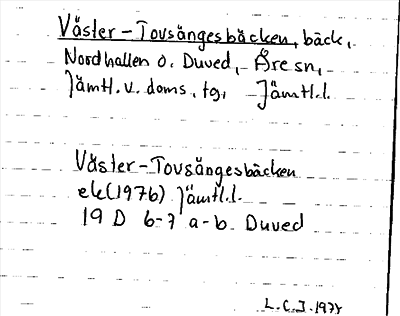 Väster-Tovsängesbäcken, bäck,
Nordhallen o. Duved, Åre sn,
Jämtl. v. doms. tg, Jämtl.l.
Väster-Tovsängesbäcken
ek(1976) Jämtl.l.
19 D 6-7 a-b Duved
L.C.J. 1978